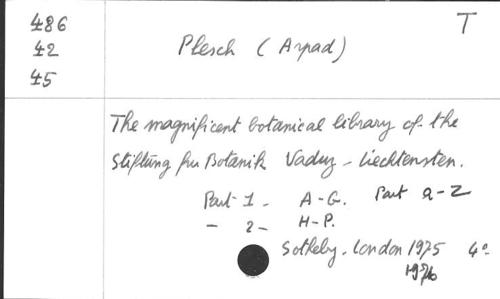 486
42
45
T
Plesch (Arpad)
The magnificent botanical library of the
Stiftung fur Botanik Vaduz - Liechtensten.
Part 1 - A-G. Part Q-Z
- 2 - H-P.
Sotheby. London 1975 4°
1976